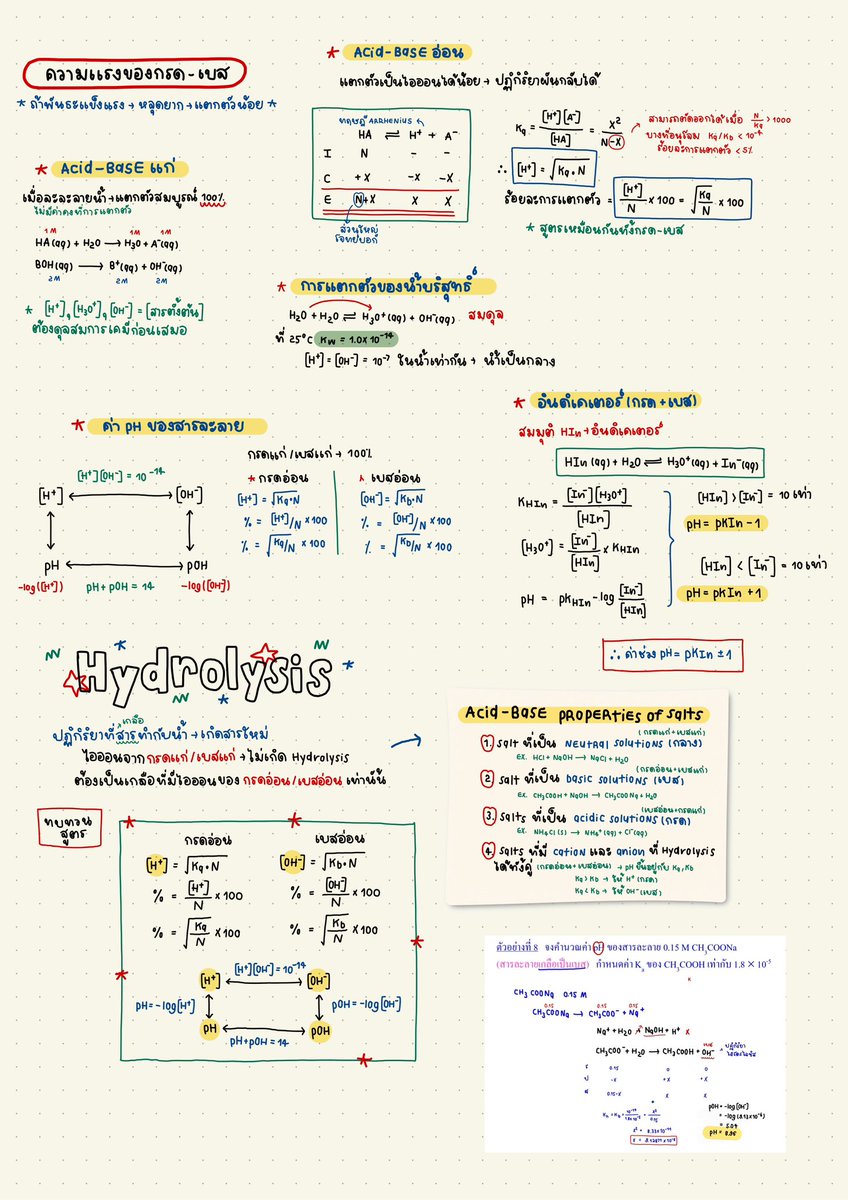 ความแรงของกรด-เบส
* ถ้าพันธะแข็งแรง → หลุดยาก → แตกตัวน้อย *
* Acid-Base แก่
เมื่อละลายน้ำ → แตกตัวสมบูรณ์ 100%
ไม่มีค่าคงที่การแตกตัว
1M 1M 1M
HA(aq) + H₂O → H₃O + A⁻(aq)
BOH(aq) → B⁺(aq) + OH⁻(aq)
2M 2M 2M
* [H⁺], [H₃O⁺], [OH⁻] = [สารตั้งต้น]
ต้องดุลสมการเคมีก่อนเสมอ
* Acid-Base อ่อน
แตกตัวเป็นไอออนได้น้อย → ปฏิกิริยาผันกลับได้
ทฤษฎี ARRHENIUS
HA ⇌ H⁺ + A⁻
I N - -
C +X -X -X
E N+X X X
ส่วนใหญ่
โจทย์บอก
Ka = [H⁺][A⁻]/[HA] = X²/N-X
สามารถตัดออกได้เมื่อ N/Ka > 1000
บางทีอนุโลม Ka/Kb < 10⁻⁴
ร้อยละการแตกตัว < 5%
∴ [H⁺] = √Ka•N
ร้อยละการแตกตัว = [H⁺]/N × 100 = √Ka/N × 100
* สูตรเหมือนกันทั้งกรด-เบส
* การแตกตัวของน้ำบริสุทธิ์
H₂O + H₂O ⇌ H₃O⁺(aq) + OH⁻(aq) สมดุล
ที่ 25°C Kw = 1.0×10⁻¹⁴
[H⁺] = [OH⁻] = 10⁻⁷ ในน้ำเท่ากัน → น้ำเป็นกลาง
* ค่า pH ของสารละลาย
[H⁺][OH⁻] = 10⁻¹⁴
[H⁺] [OH⁻]
pH pOH
-log([H⁺]) pH+pOH = 14 -log([OH⁻])
กรดแก่/เบสแก่ → 100%
* กรดอ่อน
[H⁺] = √Ka•N
% = [H⁺]/N × 100
% = √Ka/N × 100
* เบสอ่อน
[OH⁻] = √Kb•N
% = [OH⁻]/N × 100
% = √Kb/N × 100
* อินดิเคเตอร์ (กรด + เบส)
สมมุติ HIn → อินดิเคเตอร์
HIn(aq) + H₂O ⇌ H₃O⁺(aq) + In⁻(aq)
KHIn = [In⁻][H₃O⁺]/[HIn]
[H₃O⁺] = [In⁻]/[HIn] × KHIn
pH = pKHIn - log [In⁻]/[HIn]
[HIn] > [In⁻] = 10 เท่า
pH = pKIn - 1
[HIn] < [In⁻] = 10 เท่า
pH = pKIn + 1
∴ ค่าช่วง pH = pKIn ± 1
Hydrolysis
เกลือ
ปฏิกิริยาที่สารทำกับน้ำ → เกิดสารใหม่
ไอออนจากกรดแก่/เบสแก่ → ไม่เกิด Hydrolysis
ต้องเป็นเกลือที่มีไอออนของ กรดอ่อน/เบสอ่อน เท่านั้น
Acid-Base properties of salts
(กรดแก่+เบสแก่)
1. salt ที่เป็น neutral solutions (กลาง)
ex. HCl + NaOH → NaCl + H₂O
(กรดอ่อน+เบสแก่)
2. salt ที่เป็น basic solutions (เบส)
ex. CH₃COOH + NaOH → CH₃COONa + H₂O
(เบสอ่อน+กรดแก่)
3. salts ที่เป็น acidic solutions (กรด)
ex. NH₄Cl(s) → NH₄⁺(aq) + Cl⁻(aq)
4. salts ที่มี cation และ anion ที่ Hydrolysis
ได้ทั้งคู่ (กรดอ่อน+เบสอ่อน) → pH ขึ้นอยู่กับ Ka, Kb
Ka > Kb → ให้ H⁺ (กรด)
Ka < Kb → ให้ OH⁻ (เบส)
ทบทวน
สูตร
กรดอ่อน
[H⁺] = √Ka•N
% = [H⁺]/N × 100
% = √Ka/N × 100
เบสอ่อน
[OH⁻] = √Kb•N
% = [OH⁻]/N × 100
% = √Kb/N × 100
[H⁺] [H⁺][OH⁻] = 10⁻¹⁴ [OH⁻]
pH = -log[H⁺] pOH = -log[OH⁻]
pH pH+pOH = 14 pOH
ตัวอย่างที่ 8 จงคำนวณค่า pH ของสารละลาย 0.15 M CH₃COONa
(สารละลายเกลือเป็นเบส) กำหนดค่า Kₐ ของ CH₃COOH เท่ากับ 1.8 × 10⁻⁵
CH₃COONa 0.15 M
0.15 0.15 0.15
CH₃COONa → CH₃COO⁻ + Na⁺
Na⁺ + H₂O → NaOH + H⁺ x
เบส
CH₃COO⁻ + H₂O → CH₃COOH + OH⁻
ปฏิกิริยา
ไฮโดรไลซิส
ร 0.15 0 0
ป -X +X +X
ส 0.15-X X X
x² = 8.33×10⁻¹¹
pOH = -log[OH⁻]
= 5.04
pH = 8.96